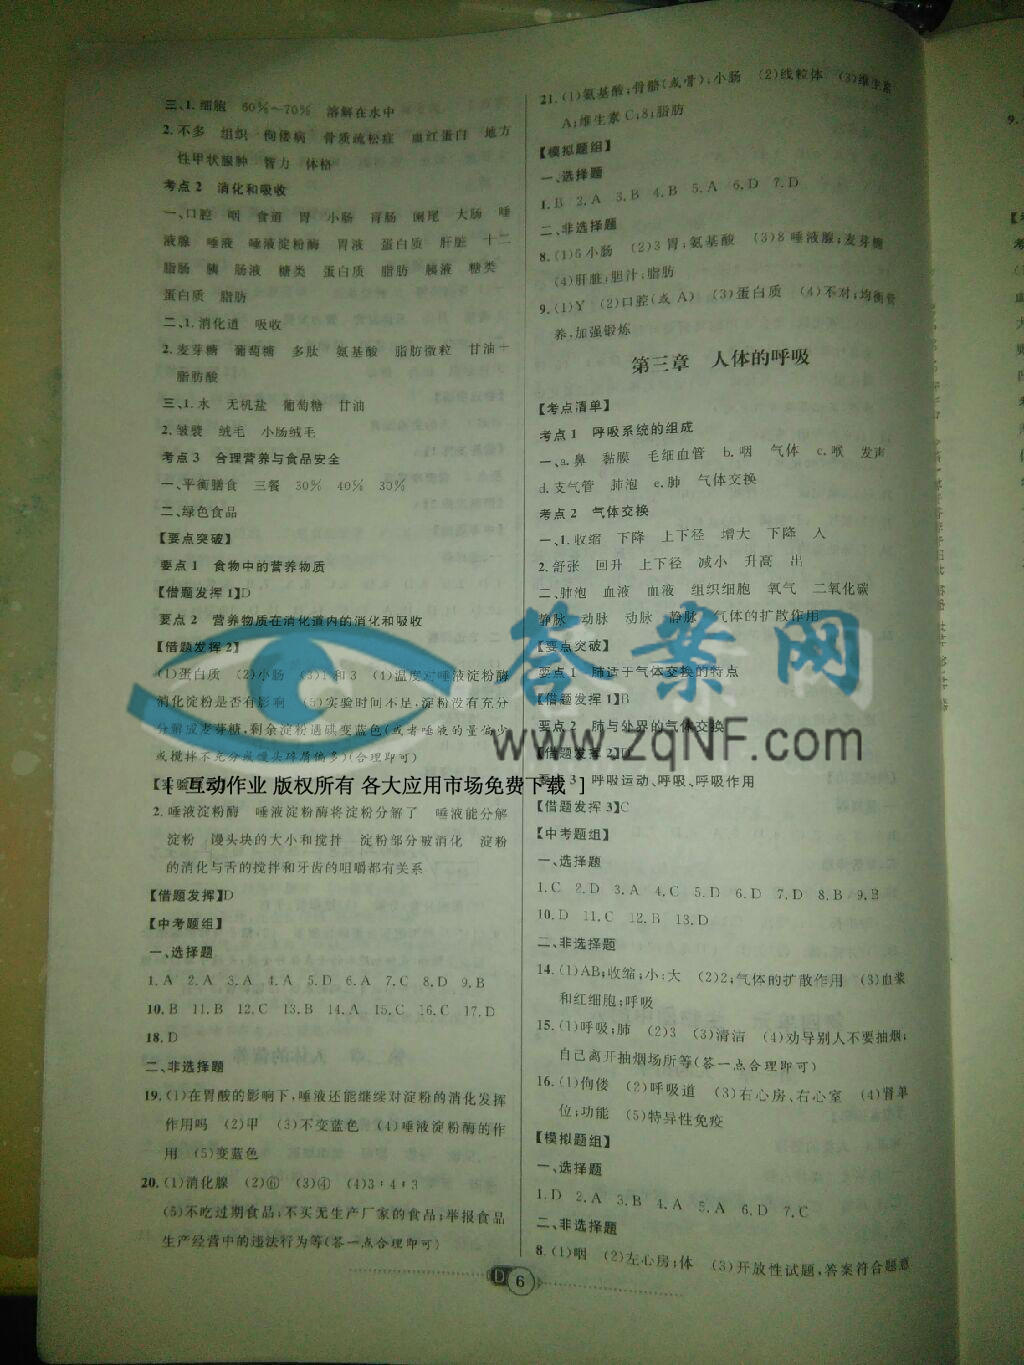 三、1.细胞 60%~70% 溶解在水中
2.不多 组织 佝偻病 骨质疏松症 血红蛋白 地方
性甲状腺肿 智力 体格
考点2 消化和吸收
一、口腔 咽 食道 胃 小肠 盲肠 阑尾 大肠 唾
液腺 唾液 唾液淀粉酶 胃液 蛋白质 肝脏 十二
指肠 胰 肠液 糖类 蛋白质 脂肪 胰液 糖类
蛋白质 脂肪
二、1.消化道 吸收
2.麦芽糖 葡萄糖 多肽 氨基酸 脂肪微粒 甘油+
脂肪酸
三、1.水 无机盐 葡萄糖 甘油
2.皱襞 绒毛 小肠绒毛
考点3 合理营养与食品安全
一、平衡膳食 三餐 30% 40% 30%
二、绿色食品
【要点突破】
要点1 食物中的营养物质
【借题发挥1】D
要点2 营养物质在消化道内的消化和吸收
【借题发挥2】
(1)蛋白质 (2)小肠 (3)1和3 (4)温度对唾液淀粉酶
消化淀粉是否有影响 (5)实验时间不足,淀粉没有充分
分解成麦芽糖,剩余淀粉遇碘变蓝色(或者唾液的量偏少
或搅拌不充分或馒头碎屑偏多)(合理即可)
[ 互动作业 版权所有 各大应用市场免费下载 ]
2.唾液淀粉酶 唾液淀粉酶将淀粉分解了 唾液能分解
淀粉 馒头块的大小和搅拌 淀粉部分被消化 淀粉
的消化与舌的搅拌和牙齿的咀嚼都有关系
【借题发挥】D
【中考题组】
一、选择题
1.A 2.A 3.A 4.A 5.D 6.A 7.C 8.D 9.B
10.B 11.B 12.C 13.B 14.A 15.C 16.C 17.D
18.D
二、非选择题
19.(1)在胃酸的影响下,唾液还能继续对淀粉的消化发挥
作用吗 (2)甲 (3)不变蓝色 (4)唾液淀粉酶的作
用 (5)变蓝色
20.(1)消化腺 (2)⑥ (3)④ (4)3:4:3
(5)不吃过期食品;不买无生产厂家的食品;举报食品
生产经营中的违法行为等(答一点合理即可)
21.(1)氨基酸;骨骼(或骨);小肠 (2)线粒体 (3)维生素
A;维生素C;8;脂肪
【模拟题组】
一、选择题
1.B 2.A 3.B 4.B 5.A 6.D 7.D
二、非选择题
8.(1)6小肠 (2)3胃;氨基酸 (3)8唾液腺;麦芽糖
(4)肝脏;胆汁;脂肪
9.(1)Y (2)口腔(或A) (3)蛋白质 (4)不对;均衡营
养,加强锻炼
第三章 人体的呼吸
【考点清单】
考点1 呼吸系统的组成
一、a.鼻 黏膜 毛细血管 b.咽 气体 c.喉 发声
d.支气管 肺泡 e.肺 气体交换
考点2 气体交换
一、1.收缩 下降 上下径 增大 下降 入
2.舒张 回升 上下径 减小 升高 出
二、肺泡 血液 血液 组织细胞 氧气 二氧化碳
静脉 动脉 动脉 静脉 气体的扩散作用
【要点突破】
要点1 肺适于气体交换的特点
【借题发挥1】B
要点2 肺与外界的气体交换
【借题发挥2】D
要点3 呼吸运动、呼吸、呼吸作用
【借题发挥3】C
【中考题组】
一、选择题
1.C 2.D 3.A 4.C 5.D 6.D 7.D 8.B 9.B
10.D 11.C 12.B 13.D
二、非选择题
14.(1)AB;收缩;小;大 (2)2;气体的扩散作用 (3)血浆
和红细胞;呼吸
15.(1)呼吸;肺 (2)3 (3)清洁 (4)劝导别人不要抽烟;
自己离开抽烟场所等(答一点合理即可)
16.(1)佝偻 (2)呼吸道 (3)右心房、右心室 (4)肾单
位;功能 (5)特异性免疫
【模拟题组】
一、选择题
1.D 2.A 3.B 4.A 5.A 6.D 7.C
二、非选择题
8.(1)咽 (2)左心房;体 (3)开放性试题,答案符合题意
D 6
答案网
www.zqNF.com